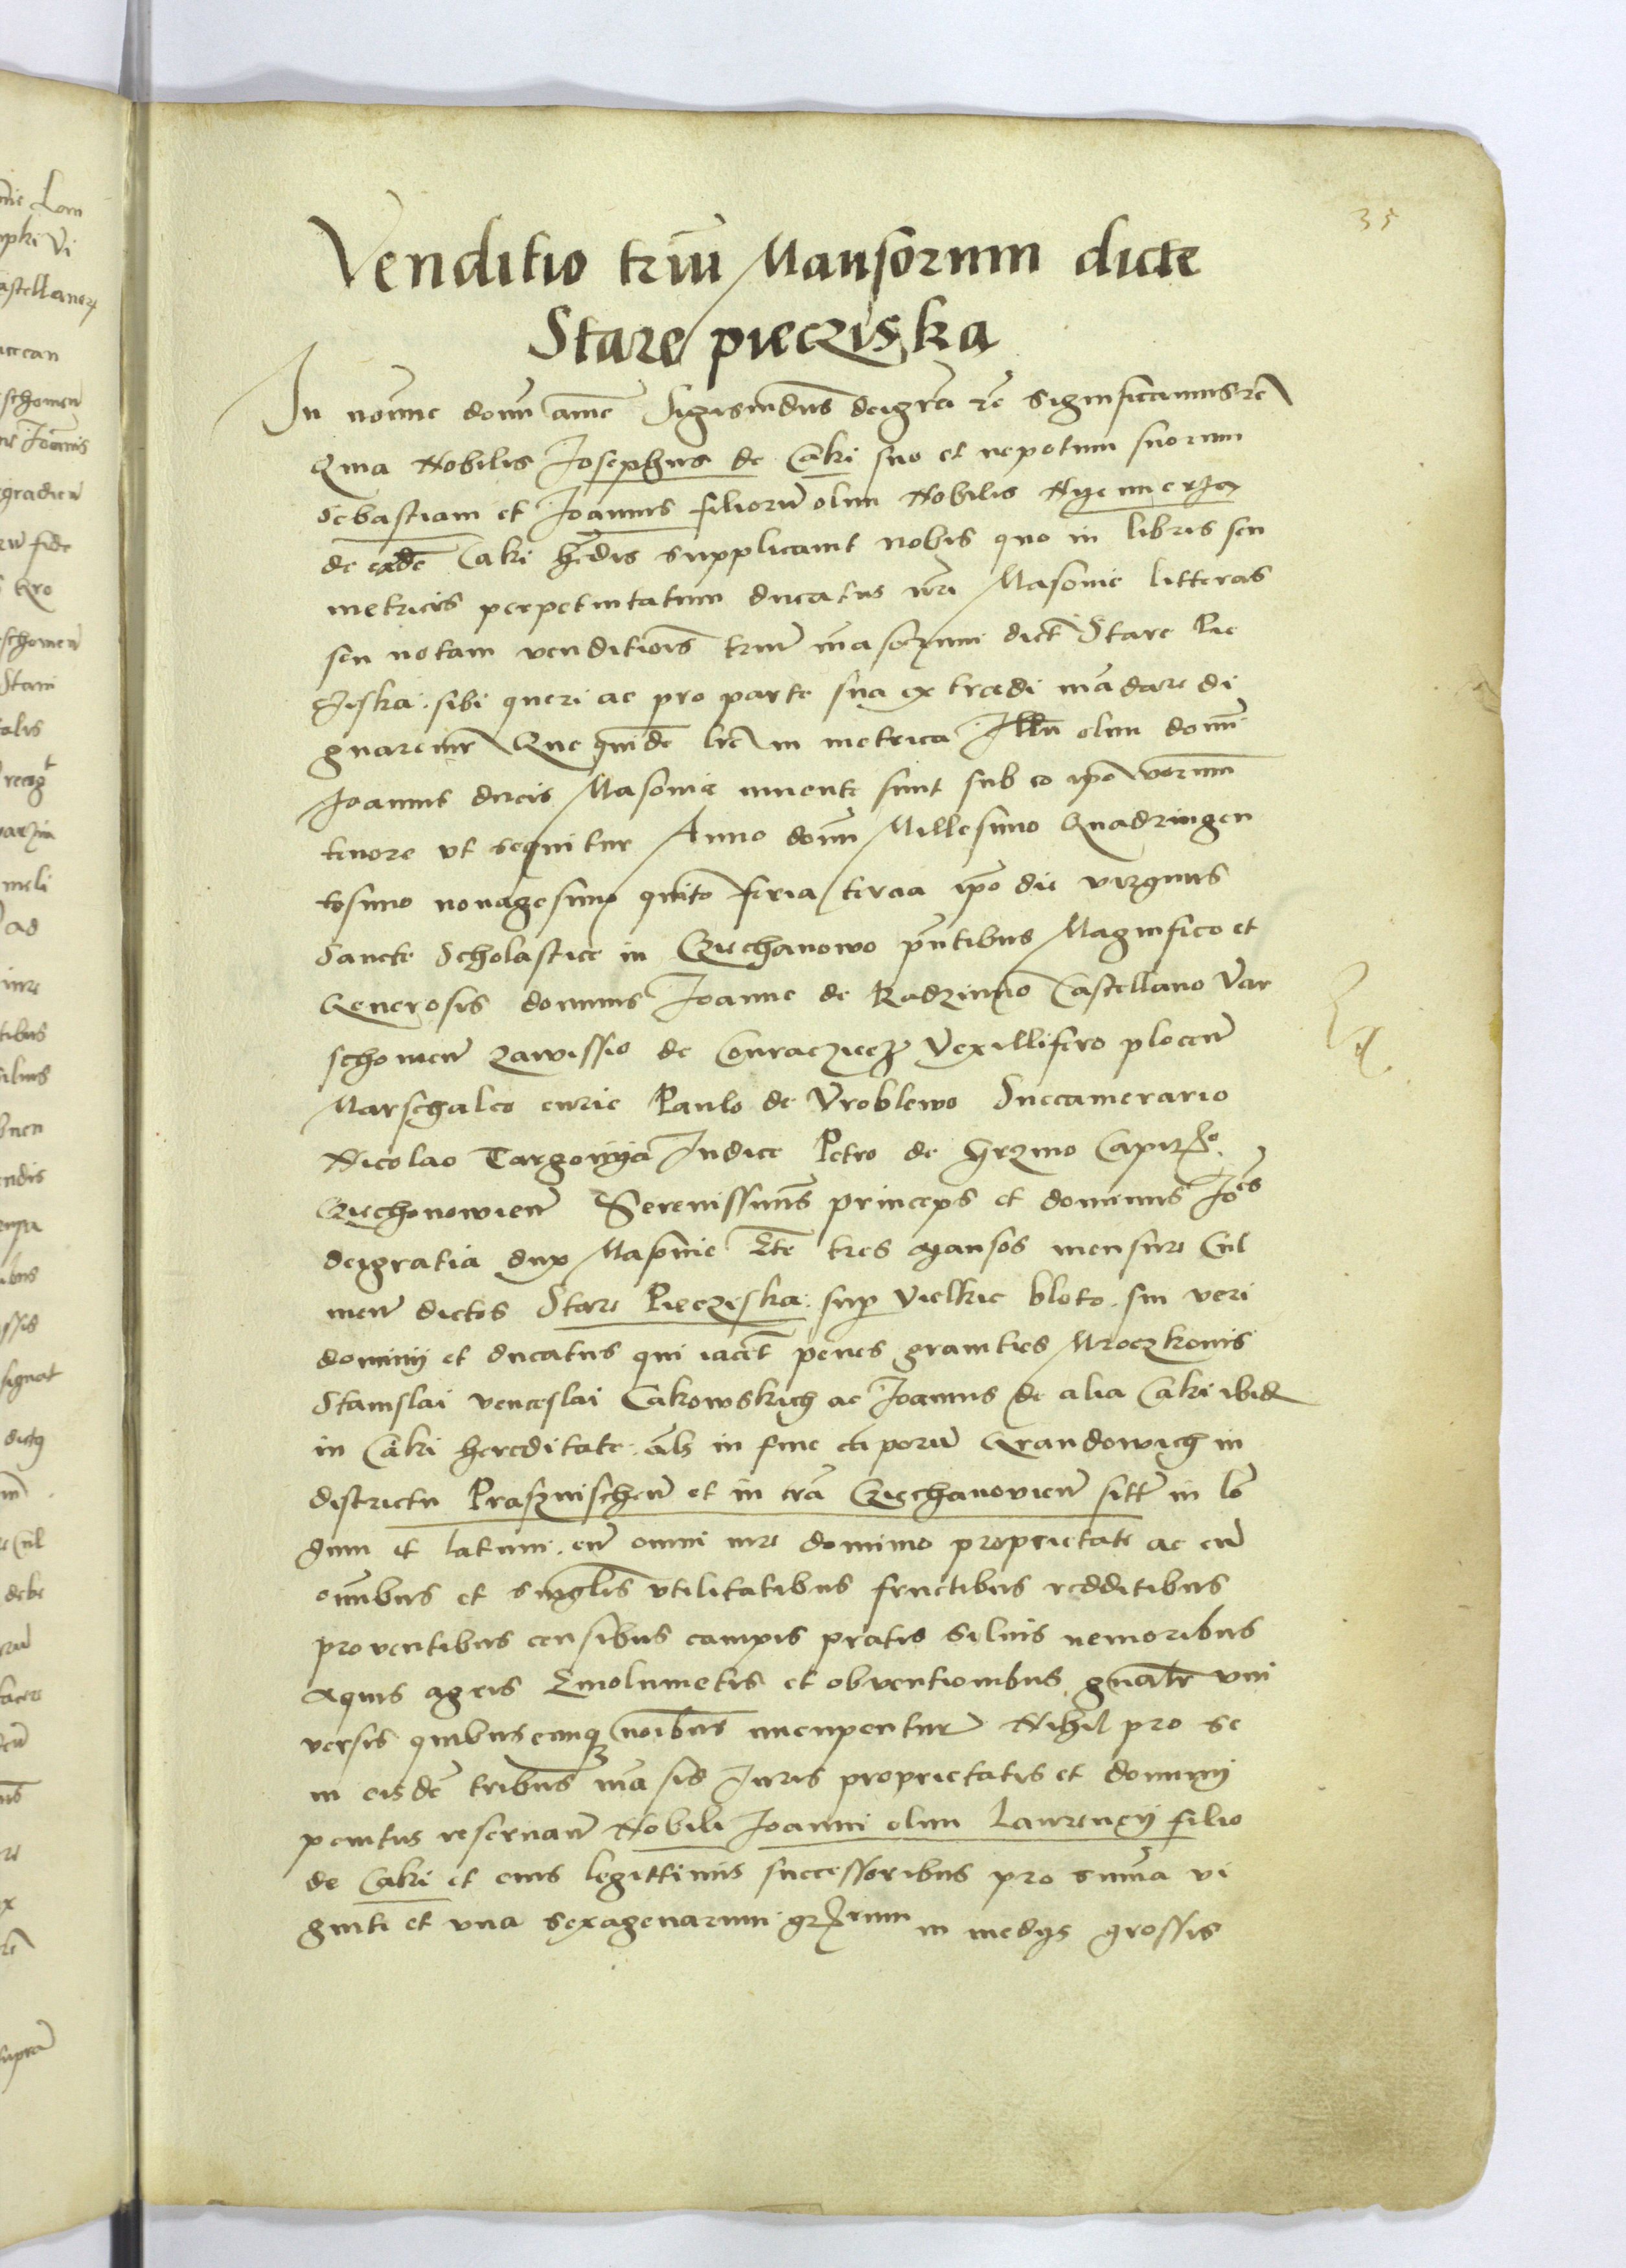 35
Venditio triũ Mansorum dicte
Stare pieczιska
In noīe domī amē Sigismūdus deigrā rē significamus rē
Quia Nobilis Josephus de Caki suo et nepotum suorum
Sebastiani et Joannis filiorū olim Nobilis Nyemierza
de eadē Caki hēdis supplicavit nobis quo in libris seu
metricis perpetuitatum ducatus nrī Masovie litteras
seu notam venditiōis triū māsorum dict Stare Pie
cziska sibi queri ac pro parte sua extradi mādare di
gnaremr Que quidē lrē in metrica Illū olim domī
Joannis ducis Masovie invente sunt sub eo ipō verorum
tenore ut sequitur Anno domī Millesimo Quadringen
tesimo nonagesimo quīto feria tercia ipō die virginis
Sancte Scholastice in Cziechanowo pntibus Magnifico et
Generosis dominis Joanne de Radzimino Castellano Var
schovien Zawissio de Conracziecz Vexillifero plocen
Marschalco curie Paulo de Vroblewo Succamerario
Nicolao Targonya Judice Petro de Grzmo Capitō
Cziechonowien Serenissimus princeps et dominus Joēs
deigratia dux Masovie Etē tres mansos mensure Cul
men dictos Stare Piecziska sup Vielkie bloto sui veri
dominij et ducatus qui iacēt penes granities Mroczkonis
Stanislai venceslai Cakowskich ac Joannis de alia Caki ibid
in Caki hereditate als in fine cāporū Grandowich in
districtu Prasznischen et in trā Cziechanovien sitt in lō
gum et latum cū omni iure dominio proprietate ac cū
omībus et singlis utilitatibus fructibus redditibus
proventibus censibus campis pratis silvis nemoribus
aquis agris Emolumētis et obventionibus gnalr uni
versis quibuscunq noībus nuncupentur Nihil pro se
in eisdē tribus māsis Juris proprietatis et dominij
penitus reservan Nobili Joanni olim Laurencij filio
de Caki et eius legittimis successoribus pro suma vi
ginti et una sexagenarum grorum in medijs grossis